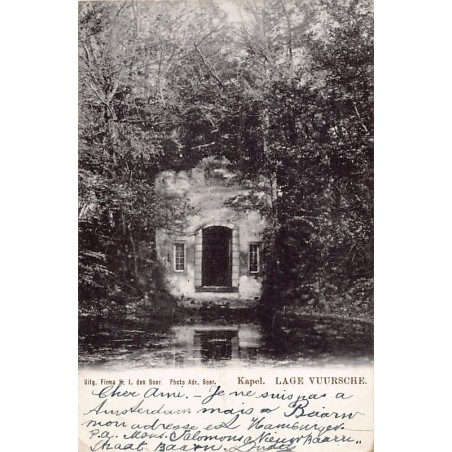 Uitg. Firma H. J. den Boer. Photo Adr. Boer.
Kapel. LAGE VUURSCHE.
Cher Ami. - Je ne suis pas a
Amsterdam mais a Baarn
mon adresse est Hamburger
p.a. Mons. Salomons Nieuw Baarn
straat Baarn